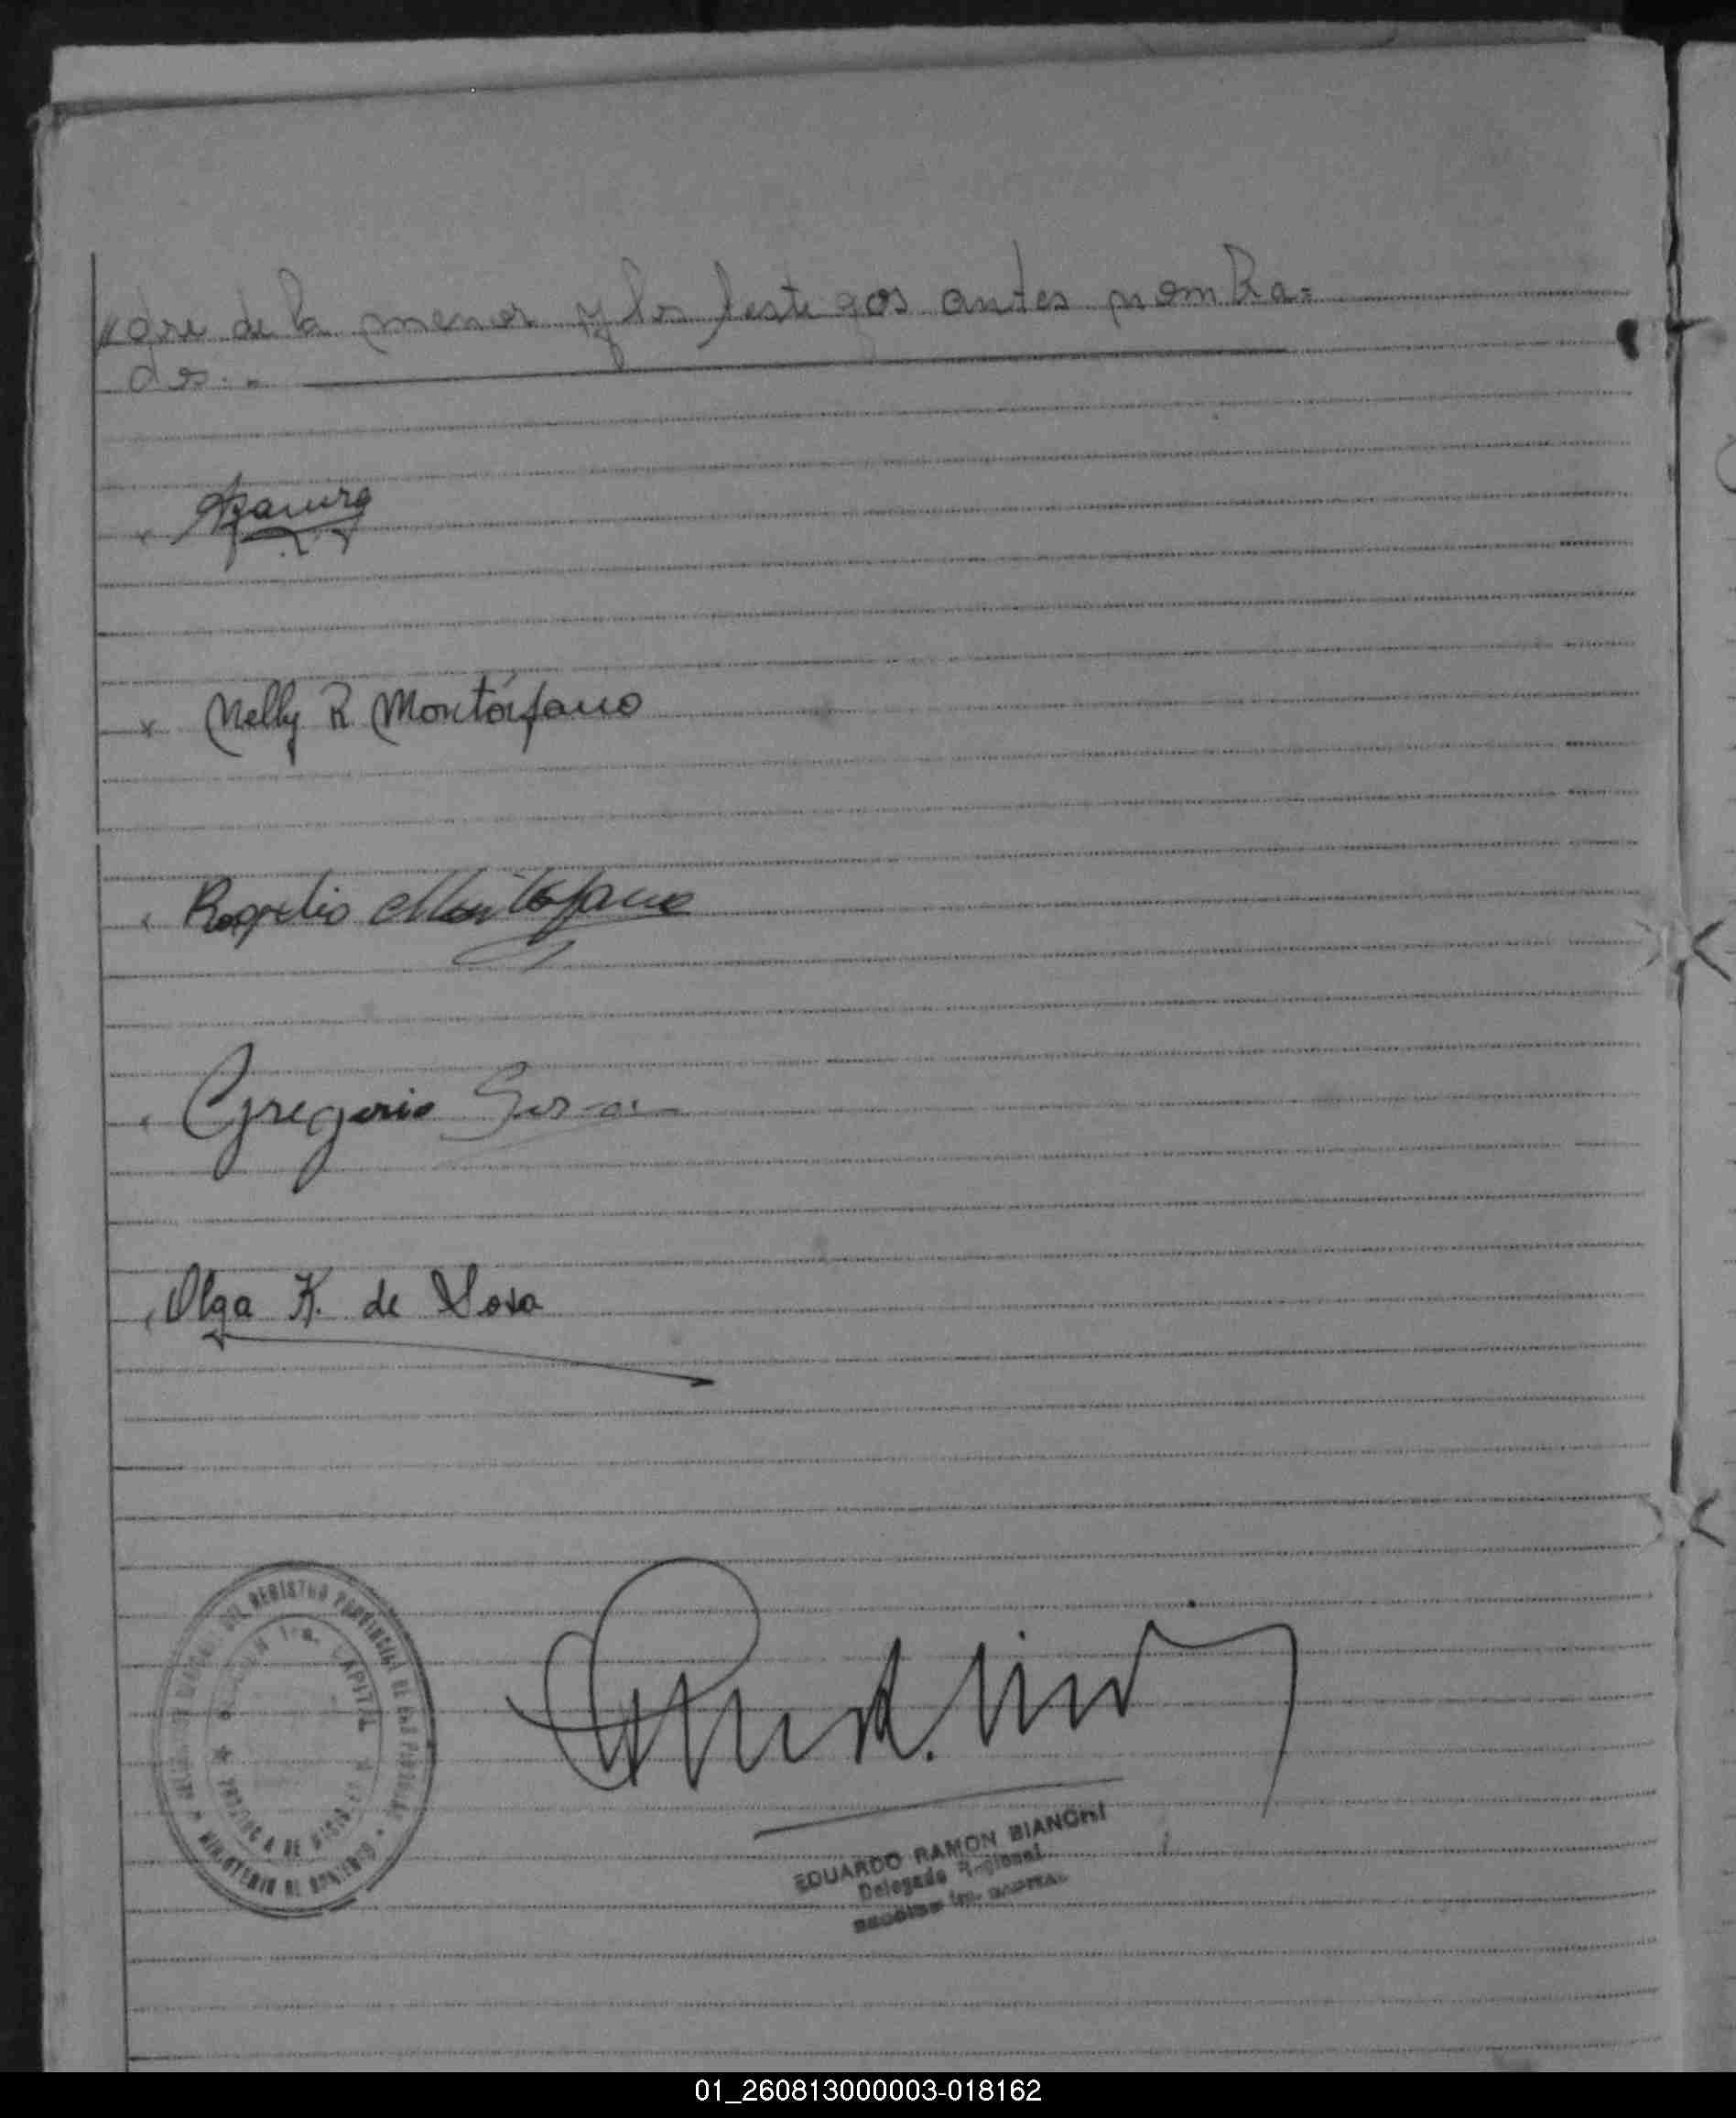 "dre de la menor y los testigos antes nombra=
dos.-
x Nelly R. Montórfano
Rogelio Montorfano
Gregorio Sosa
Olga K. de Sosa
DEL REGISTRO PROVINCIAL DE LAS PERSONAS
MINISTERIO DE GOBIERNO
1ra. CAPITAL
EDUARDO RAMON BIANCHI
Delegado Regional
Sección 1ra. CAPITAL
01_260813000003-018162